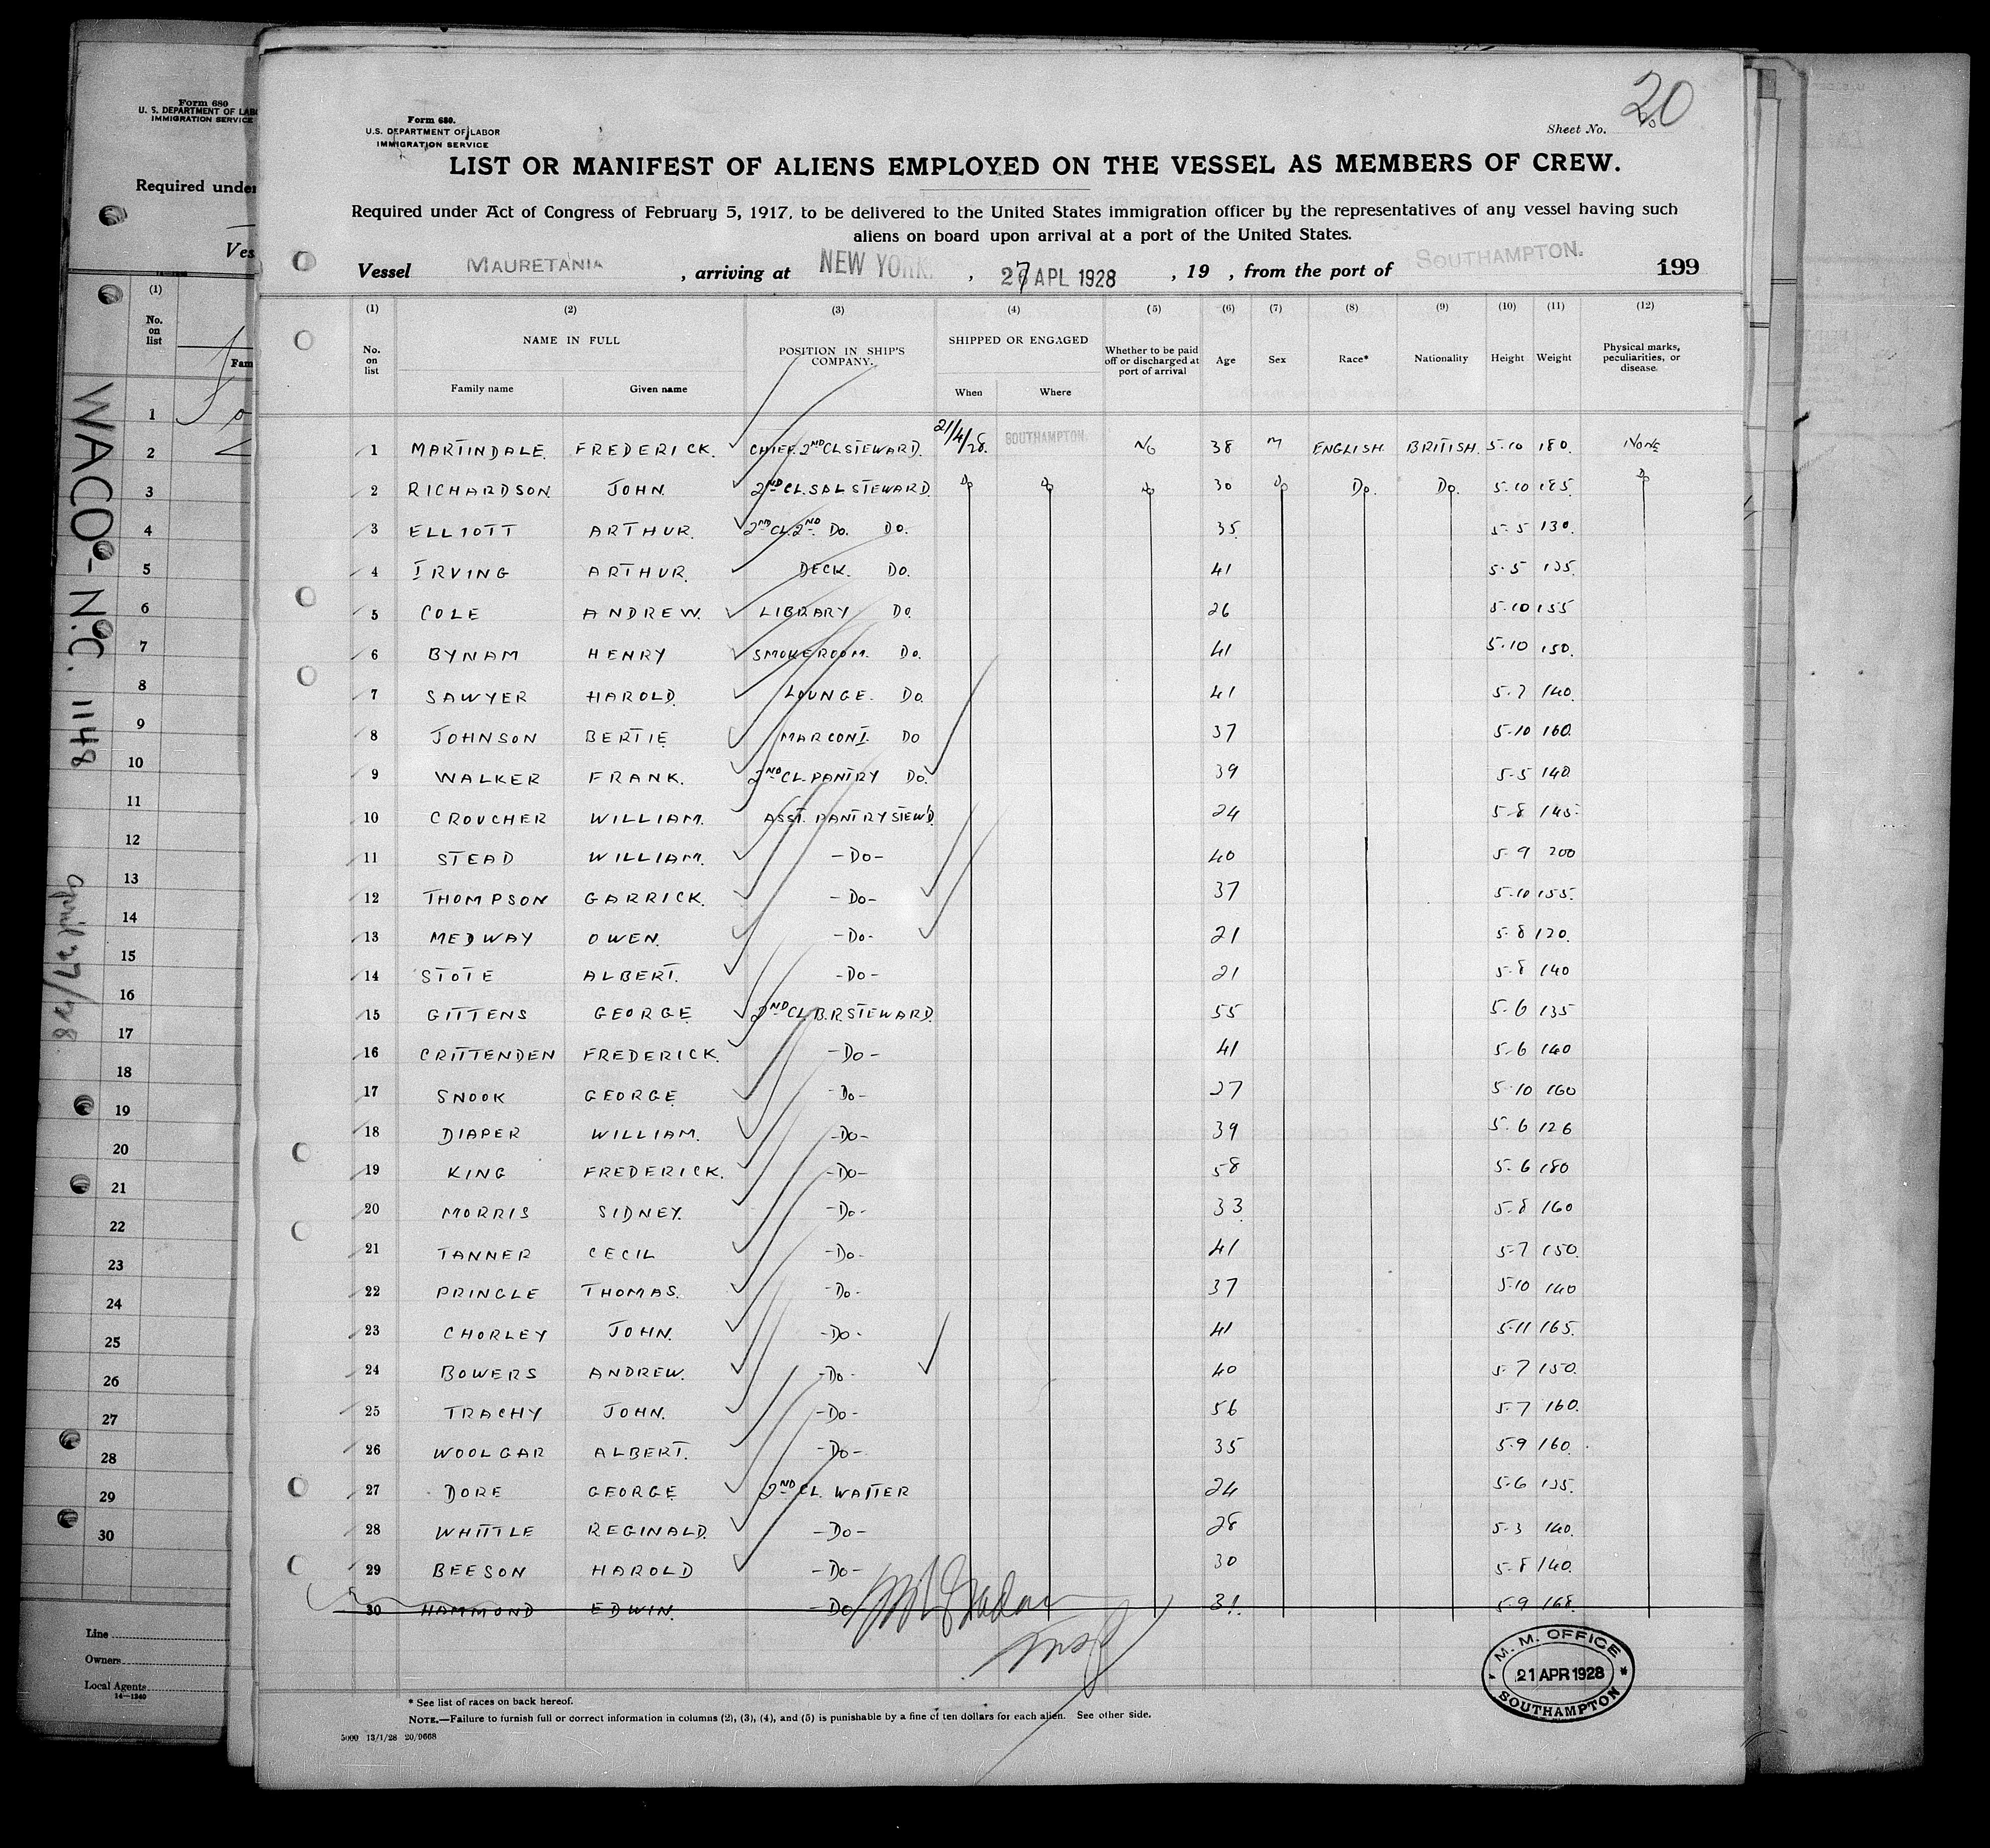 Form 680
U. S. DEPARTMENT OF LAB
IMMIGRATION SERVICE
Required unde
Ves
(1)
No. on list
Fam
1
2
3
4
5
6
7
8
9
10
11
12
13
14
15
16
17
18
19
20
21
22
23
24
25
26
27
28
29
30
Line
Owners
Local Agents
14—1240
WACO - N.C. 1148
April 27/28
20
Form 680.
U.S. DEPARTMENT OF LABOR
IMMIGRATION SERVICE
Sheet No.
LIST OR MANIFEST OF ALIENS EMPLOYED ON THE VESSEL AS MEMBERS OF CREW.
Required under Act of Congress of February 5, 1917, to be delivered to the United States immigration officer by the representatives of any vessel having such
aliens on board upon arrival at a port of the United States.
Vessel MAURETANIA, arriving at NEW YORK, 27 APL 1928, 19 , from the port of SOUTHAMPTON. 199
(1) (2) (3) (4) (5) (6) (7) (8) (9) (10) (11) (12)
No. on list NAME IN FULL POSITION IN SHIP'S COMPANY. SHIPPED OR ENGAGED Whether to be paid off or discharged at port of arrival Age Sex Race* Nationality Height Weight Physical marks, peculiarities, or disease
Family name Given name When Where
1 MARTINDALE FREDERICK. CHIEF 2ND CL STEWARD. 21/4/28. SOUTHAMPTON. NO 38 M ENGLISH. BRITISH. 5-10 180. NONE
2 RICHARDSON JOHN. 2ND CL. SAL STEWARD. Do Do Do 30 Do Do. Do. 5-10 185. Do
3 ELLIOTT ARTHUR. 2ND CL. 2ND Do. Do. 35. 5-5 130.
4 IRVING ARTHUR. DECK. Do. 41 5-5 135.
5 COLE ANDREW. LIBRARY Do 26 5-10 155
6 BYNAM HENRY SMOKEROOM. Do. 41 5-10 150.
7 SAWYER HAROLD. LOUNGE. Do. 41 5-7 140.
8 JOHNSON BERTIE MARCONI. Do 37 5-10 160.
9 WALKER FRANK. 2ND CL. PANTRY Do. 39 5-5 140.
10 CROUCHER WILLIAM. ASST. PANTRY STEWD. 24 5-8 145.
11 STEAD WILLIAM. -Do- 40 5-9 200
12 THOMPSON GARRICK. -Do- 37 5-10 155.
13 MEDWAY OWEN. -Do- 21 5-8 120.
14 STOTE ALBERT. -Do- 21 5-8 140
15 GITTENS GEORGE 2ND CL B.R. STEWARD. 55 5-6 135
16 CRITTENDEN FREDERICK. -Do- 41 5-6 140
17 SNOOK GEORGE -Do- 27 5-10 160
18 DIAPER WILLIAM. -Do- 39 5-6 126
19 KING FREDERICK. -Do- 58 5-6 180
20 MORRIS SIDNEY. -Do- 33 5-8 160
21 TANNER CECIL -Do- 41 5-7 150.
22 PRINGLE THOMAS. -Do- 37 5-10 140
23 CHORLEY JOHN. -Do- 41 5-11 165.
24 BOWERS ANDREW. -Do- 40 5-7 150.
25 TRACHY JOHN. -Do- 56 5-7 160.
26 WOOLGAR ALBERT. -Do- 35 5-9 160.
27 DORE GEORGE 2ND CL. WAITER 24 5-6 135.
28 WHITTLE REGINALD. -Do- 28 5-3 140.
29 BEESON HAROLD -Do- 30 5-8 140.
30 HAMMOND EDWIN. -Do 31. 5-9 168.
M. M. OFFICE
21 APR 1928
SOUTHAMPTON
* See list of races on back hereof.
NOTE.—Failure to furnish full or correct information in columns (2), (3), (4), and (5) is punishable by a fine of ten dollars for each alien. See other side.
5000 13/1/28 20/9668